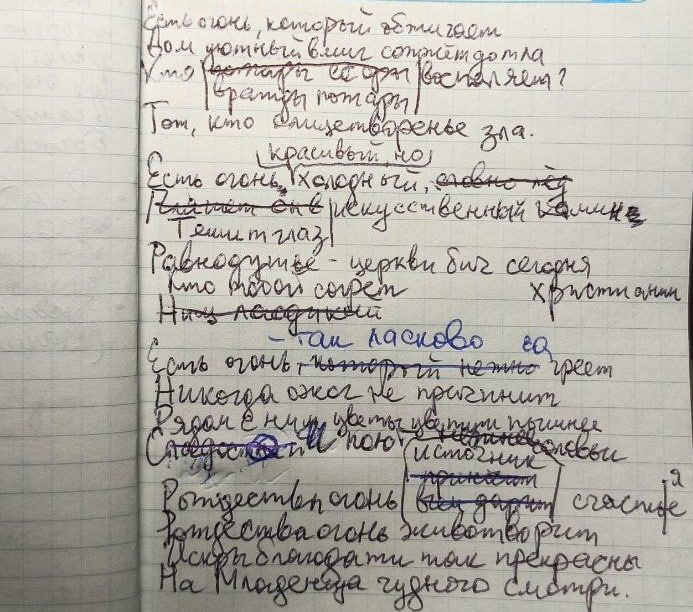 Есть огонь, который обжигает
Дом уютный вмиг сожжёт дотла
Кто пожары ссоры воспаляет?
вражды пожары
Тот, кто олицетворенье зла.
красивый, но
Есть огонь, холодный, словно лёд
Пляшет он в искусственный камине
Тешит глаз
Равнодушье - церкви бич сегодня
Кто тобой согрет христианин
- так ласково
Есть огонь, который нежно греет
Никогда ожог не причинит
Рядом с ним цветы цветут пышнее
И поют соловьи
источник
приносит
всем дарит
Рождества огонь счастья
Рождества огонь животворит
Искры благодати так прекрасны
На Младенца чудного смотри.